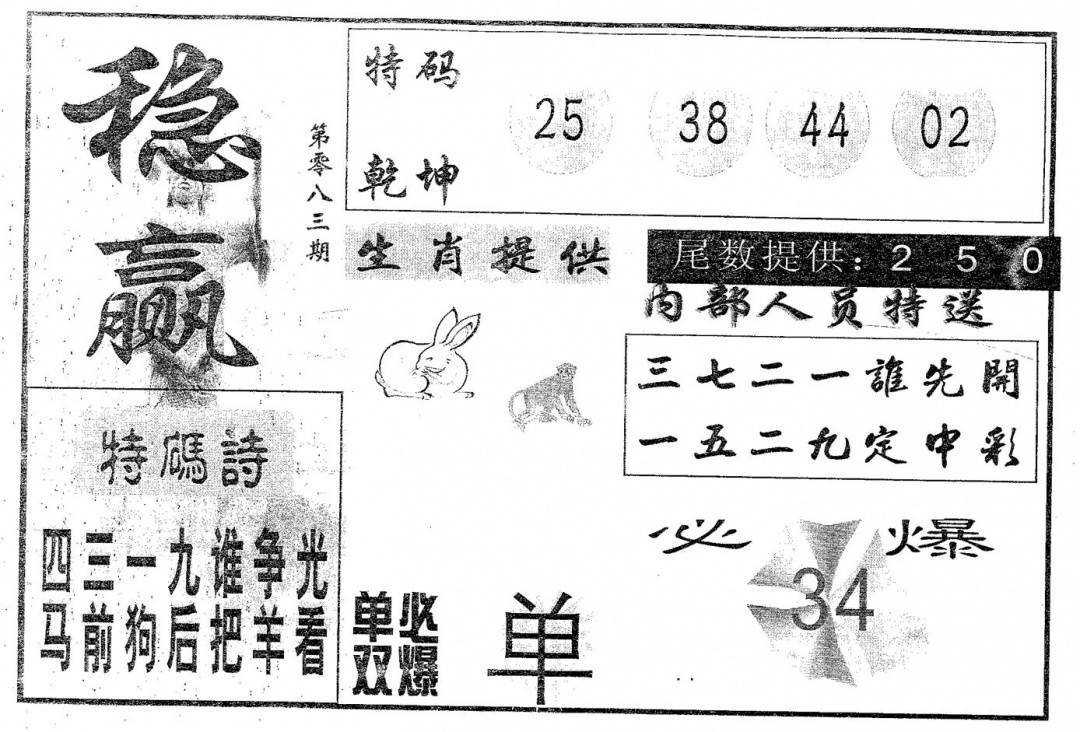 稳赢
第零八三期
特码
乾坤
25 38 44 02
生肖提供
尾数提供：2 5 0
内部人员特送
三七二一誰先開
一五二九定中彩
特碼詩
四三一九谁争光
马前狗后把羊看
单双
必爆
单
必爆
34